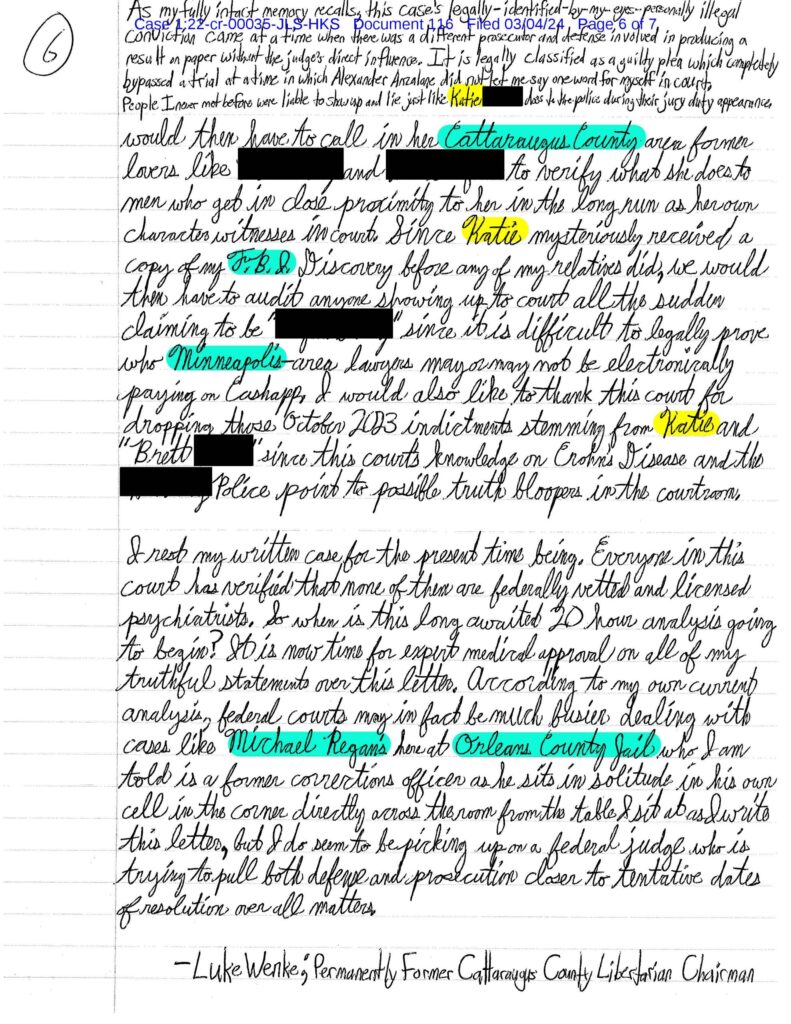 As my fully intact memory recalls, this case's legally-identified-by-my-eyes-personally illegal
Case 1:22-cr-00035-JLS-HKS Document 116 Filed 03/04/24 Page 6 of 7
conviction came at a time when there was a different prosecutor and defense involved in producing a
6
result on paper without the judge's direct influence. It is legally classified as a guilty plea which completely
bypassed a trial at a time in which Alexander Anzalone did not let me say one word for myself in court.
People I never met before were liable to show up and lie just like Katie does to the police during their jury duty appearance.
would then have to call in her Cattaraugus County area former
lovers like and to verify what she does to
men who get in close proximity to her in the long run as her own
character witnesses in court. Since Katie mysteriously received a
copy of my F.B.I. Discovery before any of my relatives did, we would
then have to audit anyone showing up to court all the sudden
claiming to be " " since it is difficult to legally prove
who Minneapolis-area lawyers may or may not be electronically
paying on Cashapp. I would also like to thank this court for
dropping those October 2023 indictments stemming from Katie and
"Brett " since this courts knowledge on Crohn's Disease and the
Police point to possible truth bloopers in the courtroom.
I rest my written case for the present time being. Everyone in this
court has verified that none of them are federally vetted and licensed
psychiatrists. So when is this long awaited 20 hour analysis going
to begin? It is now time for expert medical approval on all of my
truthful statements over this letter. According to my own current
analysis, federal courts may in fact be much busier dealing with
cases like Michael Regan's here at Orleans County Jail who I am
told is a former corrections officer as he sits in solitude in his own
cell in the corner directly across the room from the table I sit at as I write
this letter, but I do seem to be picking up on a federal judge who is
trying to pull both defense and prosecution closer to tentative dates
of resolution over all matters.
-Luke Wenke, Permanently Former Cattaraugus County Libertarian Chairman